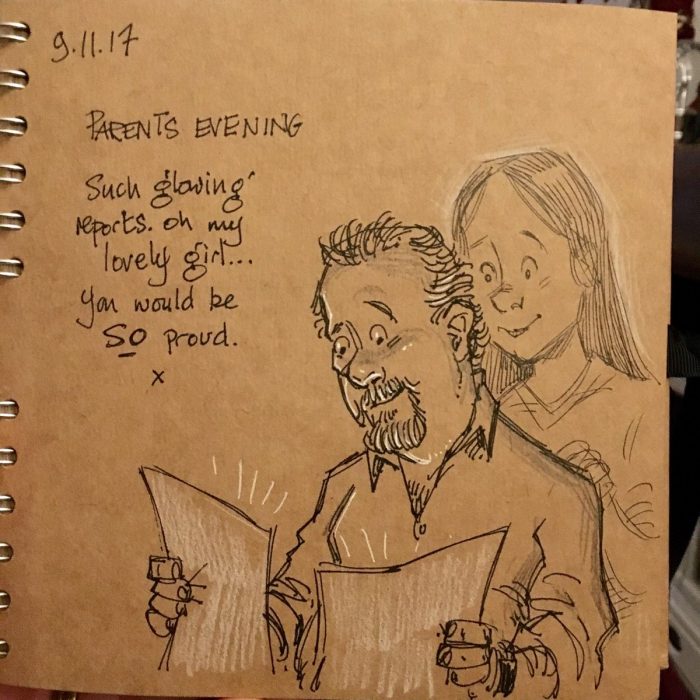 9.11.17
PARENTS EVENING
Such 'glowing'
reports. oh my
lovely girl...
you would be
SO proud.
x